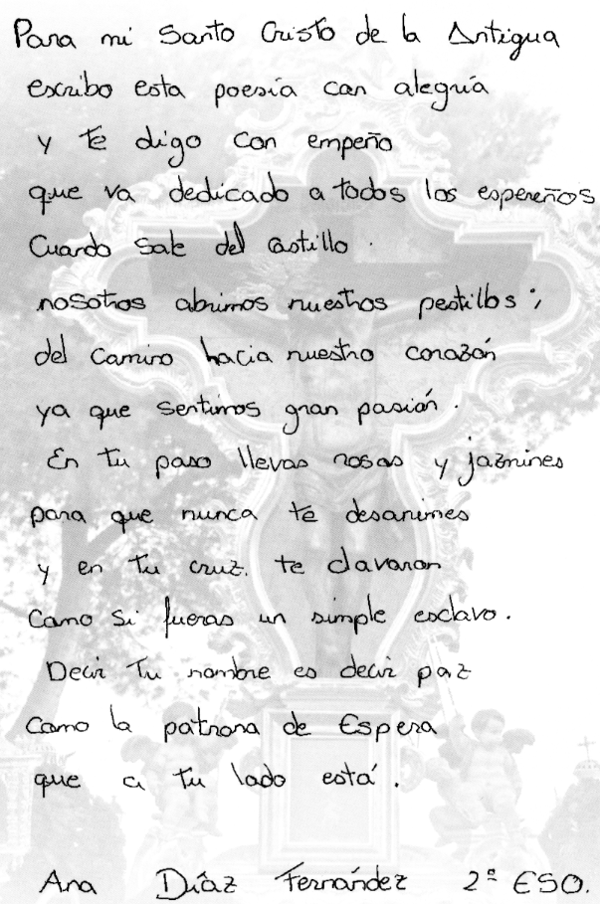 Para mi Santo Cristo de la Antigua
escribo esta poesía con alegría
y te digo con empeño
que va dedicado a todos los espereños
Cuando sale del castillo.
nosotros abrimos nuestros pestillos;
del camino hacia nuestro corazón
ya que sentimos gran pasión.
En tu paso llevas rosas y jazmines
para que nunca te desanimes
y en tu cruz. te clavaron
Como si fueras un simple esclavo.
Decir Tu nombre es decir paz
como la patrona de Espera
que a tu lado está.
Ana Díaz Fernández 2º ESO.